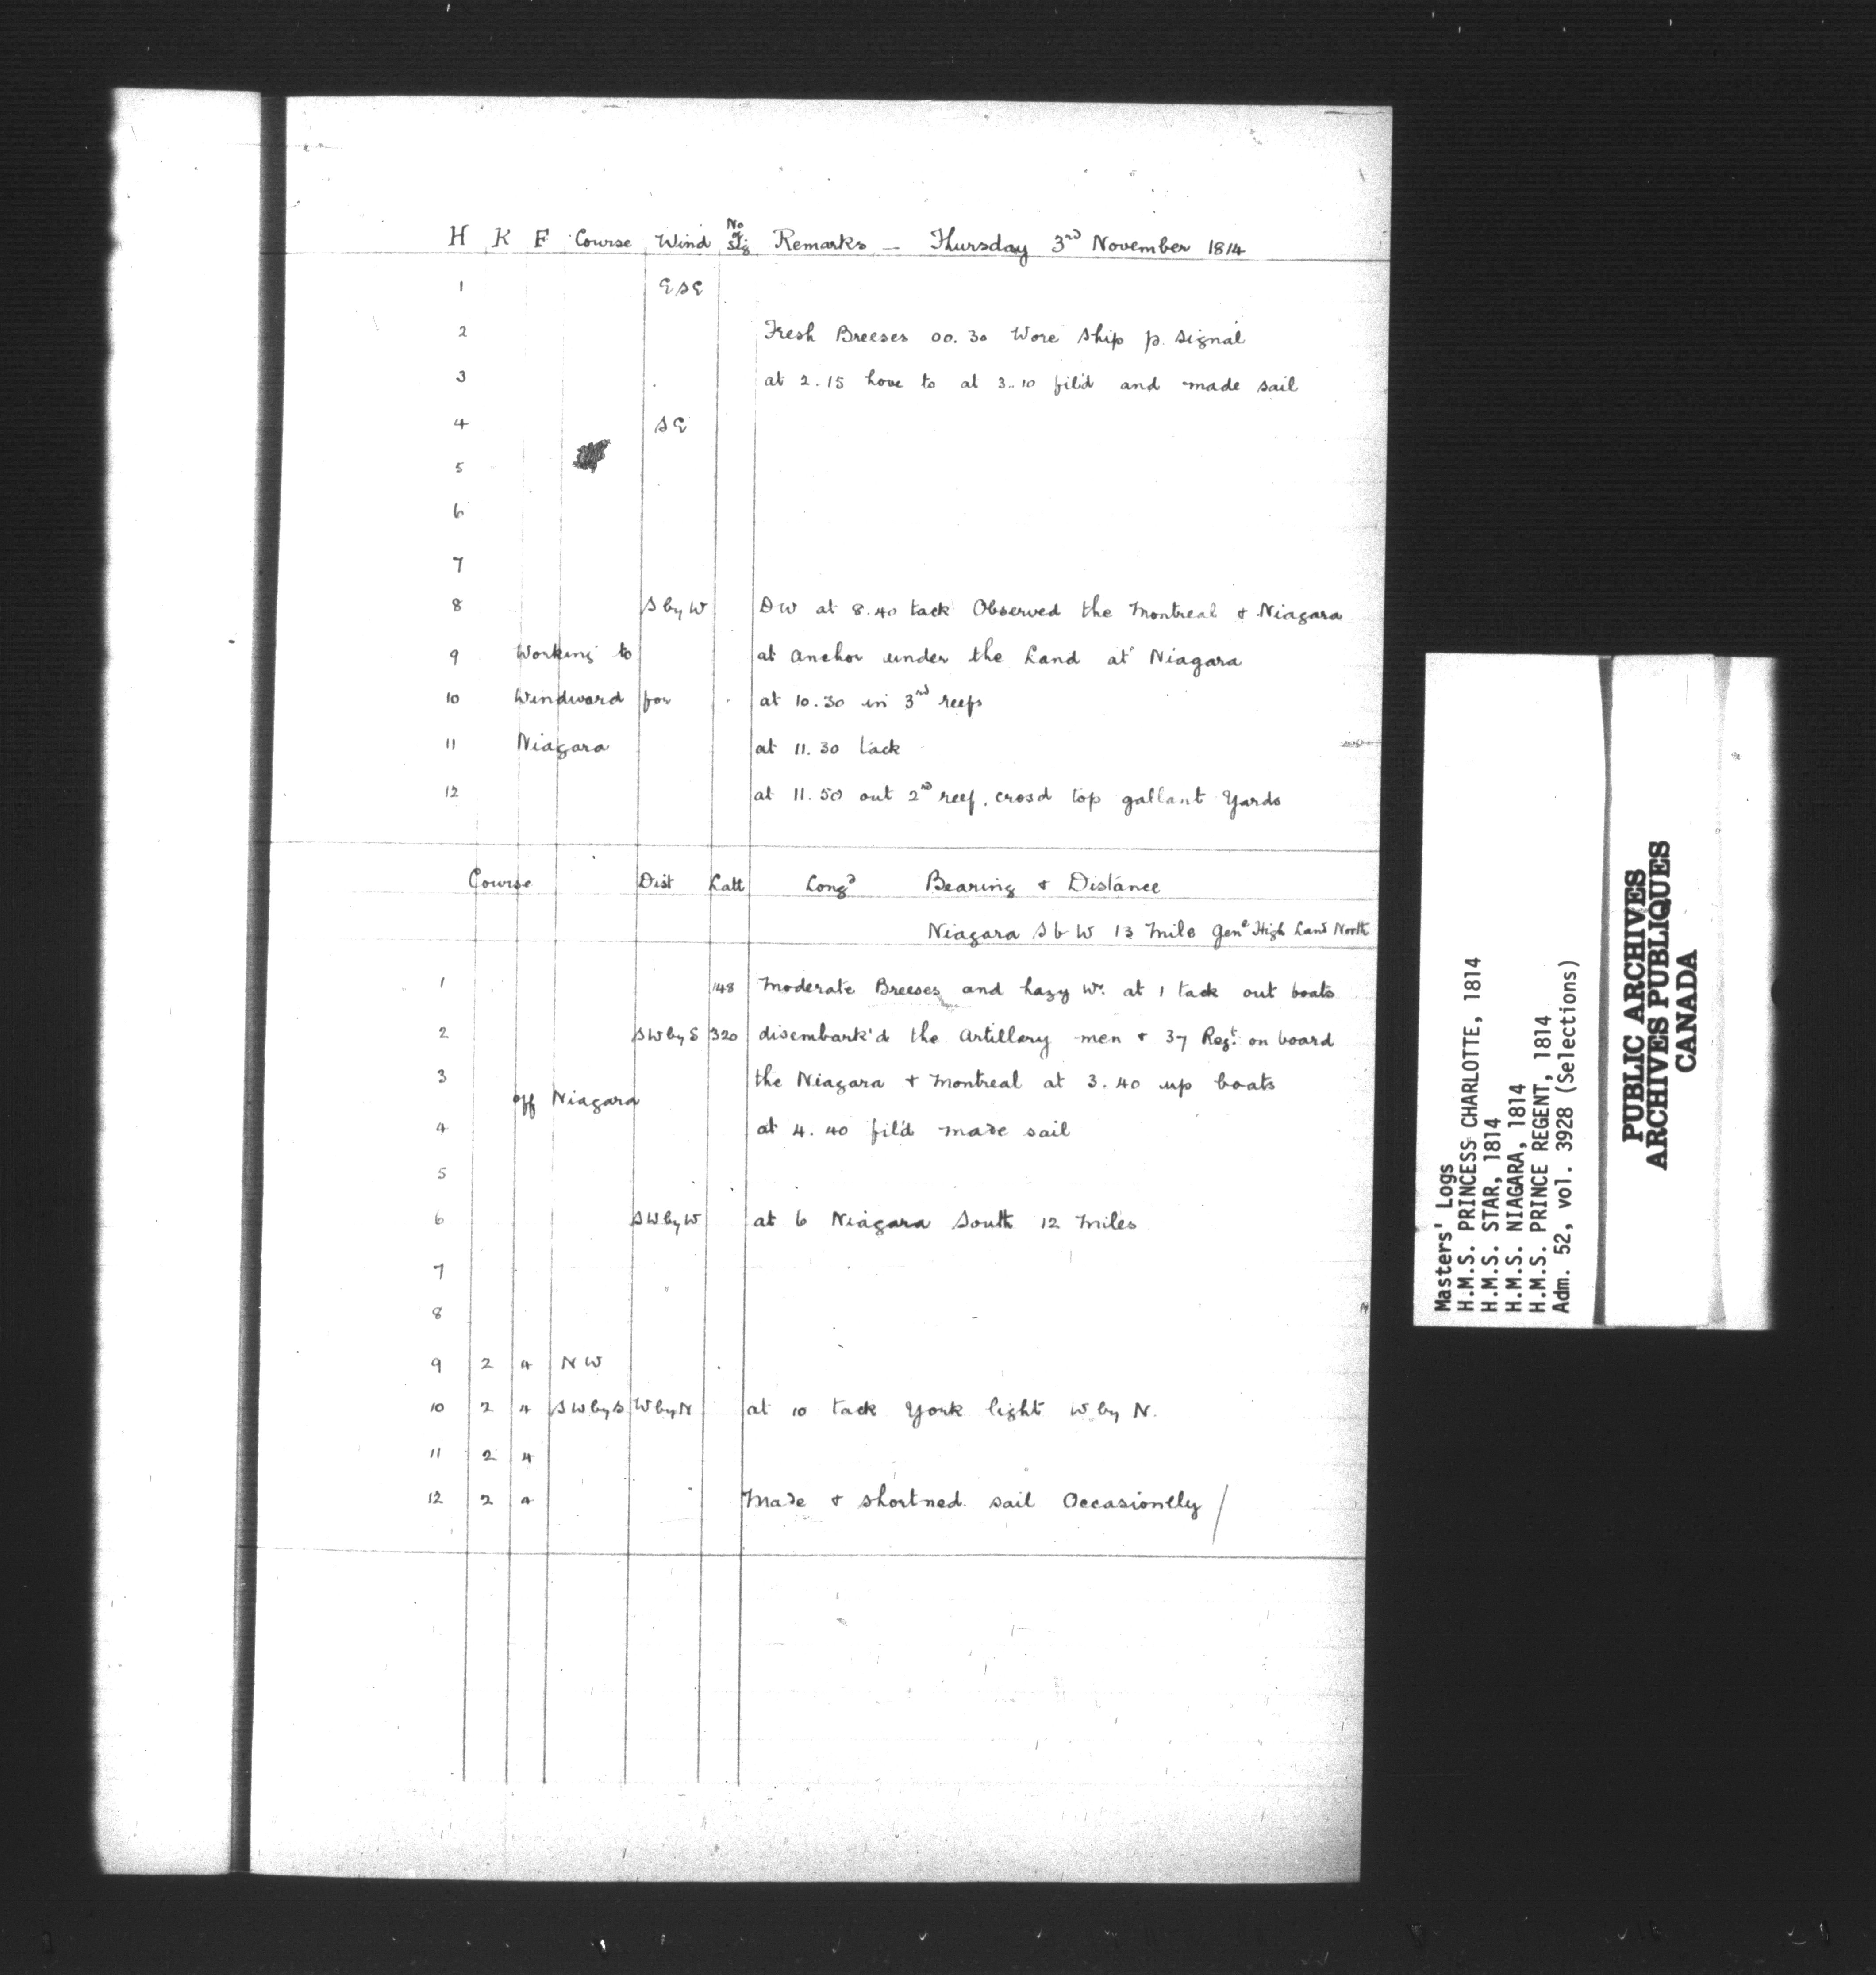 H K F Course Wind No of Sig Remarks — Thursday 3rd November 1814
1 ESE
2 Fresh Breeses 00.30 Wore Ship p. Signal
3 at 2.15 hove to at 3..10 fil'd and made sail
4 SE
5
6
7
8 S by W DW at 8.40 tack Observed the Montreal & Niagara
9 Working to at anchor under the Land at Niagara
10 Windward for at 10.30 in 3rd reefs
11 Niagara at 11.30 tack
12 at 11.50 out 2nd reef, crosd top gallant Yards
Course Dist Latt Longd Bearing & Distance
Niagara S b W 13 Mile Genl High Land North
1 148 Moderate Breeses and hazy Wr. at 1 tack out boats
2 SW by S 320 disembark'd the Artillary men & 37 Regt. on board
3 the Niagara & Montreal at 3.40 up boats
off Niagara
4 at 4.40 fil'd made sail
5
6 SW by W at 6 Niagara South 12 Miles
7
8
9 2 4 NW
10 2 4 SW by S W by N at 10 tack York light W by N.
11 2 4
12 2 4 Made & shortned sail Occasionlly /
Masters' Logs
H.M.S. PRINCESS CHARLOTTE, 1814
H.M.S. STAR, 1814
H.M.S. NIAGARA, 1814
H.M.S. PRINCE REGENT, 1814
Adm. 52, vol. 3928 (Selections)
PUBLIC ARCHIVES
ARCHIVES PUBLIQUES
CANADA